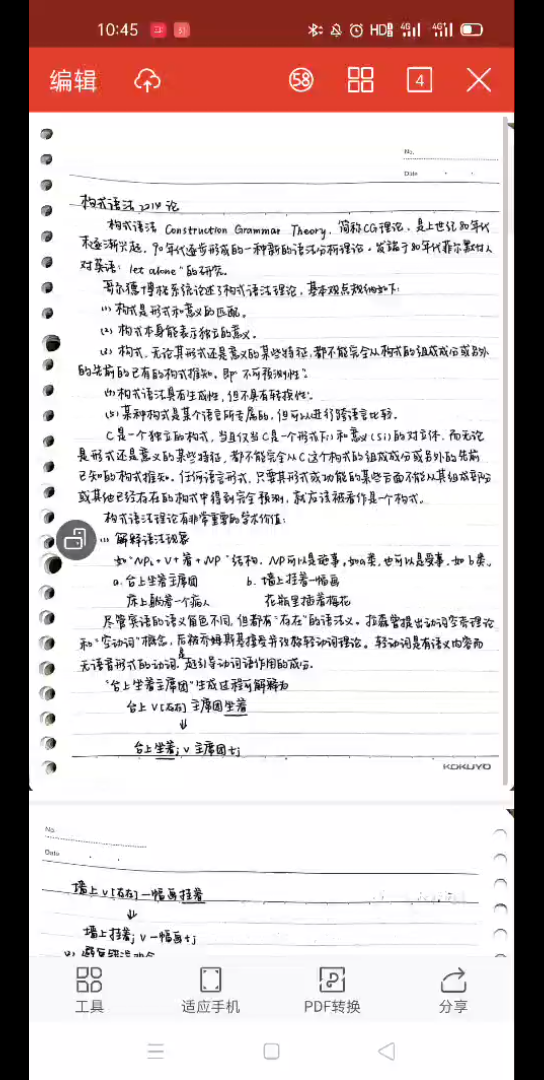 10:45
HD
4G
4G
编辑
58
4
No.
Date
构式语法理论
构式语法 Construction Grammar Theory, 简称CG理论, 是上世纪80年代
末逐渐兴起, 90年代逐步形成的一种新的语法分析理论。发端于80年代菲尔墨对
对英语"let alone"的研究。
哥尔德博格系统论述了构式语法理论, 基本观点规纳如下:
(1) 构式是形式和意义的匹配。
(2) 构式本身能表示独立的意义。
(3) 构式, 无论其形式还是意义的某些特征, 都不能完全从构式的组成成分或另外
的先前的已有的构式推知。即"不可预测性"。
(4) 构式语法具有生成性, 但不具有转换性。
(5) 某种构式是某个语言所专属的, 但可以进行跨语言比较。
C是一个独立的构式, 当且仅当C是一个形式(Fi)和意义(Si)的对应体, 而无论
是形式还是意义的某些特征, 都不能完全从C这个构式的组成成分或另外的先前
已知的构式推知。任何语言形式, 只要其形式或功能的某些方面不能从其组成部分
或其他已经存在的构式中得到完全预测, 就应该被看作是一个构式。
构式语法理论有非常重要的学术价值:
(1) 解释语法现象
如"NPL+V+着+NP"结构, NP可以是施事, 如a类, 也可以是受事, 如b类。
a. 台上坐着主席团 b. 墙上挂着一幅画
床上躺着一个病人 花瓶里插着梅花
尽管宾语的语义角色不同, 但都有"存在"的语法义。
和"空动词"概念, 后被乔姆斯基接受并改称轻动词理论。轻动词是有语义内容而
无语音形式的动词, 是引导动词语作用的成分。
"台上坐着主席团"生成过程可解释为
台上 V[存在] 主席团坐着
↓
台上坐着j V 主席团 tj
KOKUYO
No.
Date
墙上 V[存在] 一幅画挂着
↓
墙上挂着j V 一幅画 tj
工具
适应手机
PDF转换
分享